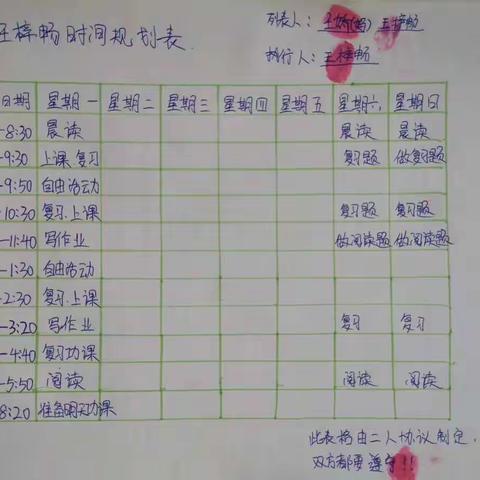 王梓畅时间规划表.
列表人：王娇(妈) 王梓畅
执行人：王梓畅
日期 星期一 星期二 星期三 星期四 星期五 星期六 星期日
-8:30 晨读 晨读 晨读
-9:30 上课.复习 复习题 做复习题
-9:50 自由活动
-10:30 复习.上课 复习题 复习题
-11:40 写作业 做阅读题 做阅读题
-1:30 自由活动
-2:30 复习.上课
-3:20 写作业 复习 复习
-4:40 复习功课
-5:50 阅读 阅读 阅读
8:20 准备明天功课
此表格由二人协议制定，
双方都要遵守!!